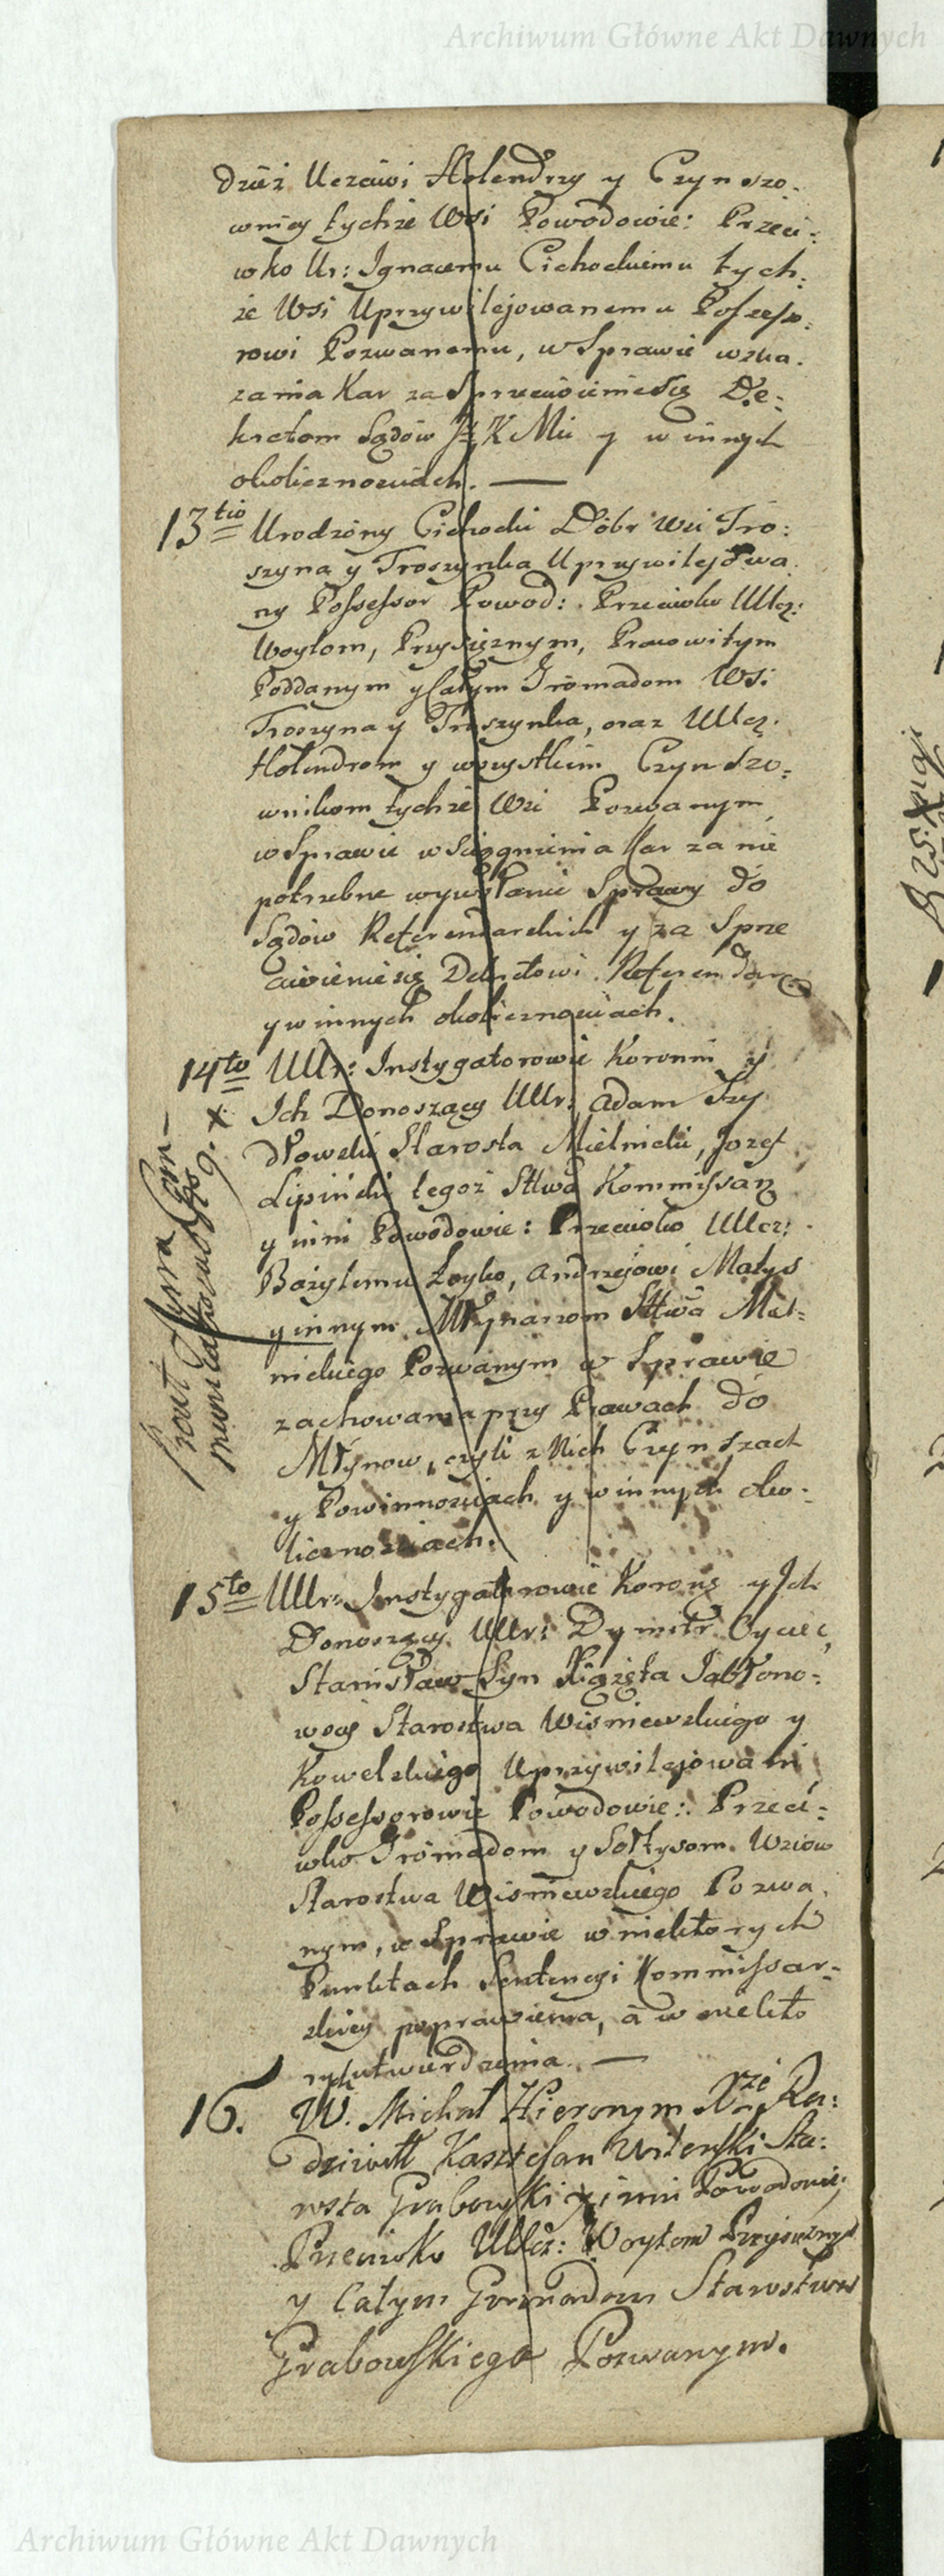 Archiwum Główne Akt Dawnych
dzież Uczciwi Holendrzy y Czynszo-
wnicy tychże Wsi Powodowie: Przeci-
wko Ur: Ignacemu Cichockiemu tych-
że Wsi Uprzywilejowanemu Possesso-
rowi Pozwanemu, w Sprawie wska-
zania Kar za Sprzeciwienie się De-
kretom Sądów J K Mci y w innych
okolicznościach. —
13tio Urodzony Cichocki Dóbr Wsi Tro-
szyna y Troszynka Uprzywilejowa
ny Possessor Powod: Przeciwko UUcz:
Woytom, Przysięznym, Pracowitym
Poddanym y Całym Gromadom Wsi
Troszyna y Troszynka, oraz UUcz.
Holendrom y wszystkim Czynszo-
wnikom tychże Wsi Pozwanym
w Sprawie wściągnienia Kar za nie
potrzebne wywołanie Sprawy do
Sądów Referendarskich y za Sprze
ciwienie się Dekretowi Referendar:
y w innych okolicznościach.
14to UUr: Instygatorowie Koronni y
Ich Donoszący UUr: Adam Szy
dłowski Starosta Mielnicki, Jozef
Lipiński tegoż Sttwa Kommissarz
y inni Powodowie: Przeciwko UUcz:
Bazylemu Łoyko, Andrzejowi Małys
y innym Młynarzom Sttwa Miel-
nickiego Pozwanym w Sprawie
zachowania przy Prawach do
Młynow, czyli z Nich Czynszach
y Powinnościach y w innych oko-
licznościach.
15to UUr: Instygatorowie Korony y Ich
Donoszący UUr: Dymitr Oyciec,
Stanisław Syn Xiążęta Jabłono-
wscy Starostwa Wisniewskiego y
Kowelskiego Uprzywilejowani
Possessorowie Powodowie: Przeci-
wko Gromadom y Sołtysom Wsiow
Starostwa Wisniewskiego Pozwa
nym, w Sprawie w niektorych
Punktach Sentencyi Kommissar-
skiey poprawienia, a w niekto
rych utwierdzenia. —
16. W. Michał Hieronym Xże Ra-
dziwiłł Kasztelan Wileński Sta-
rosta Grabowski y inni Powodowie;
Przeciwko UUcz: Woytom Przysieznym
y Całym Gromadom Starostwa
Grabowskiego Pozwanym.
Archiwum Główne Akt Dawnych